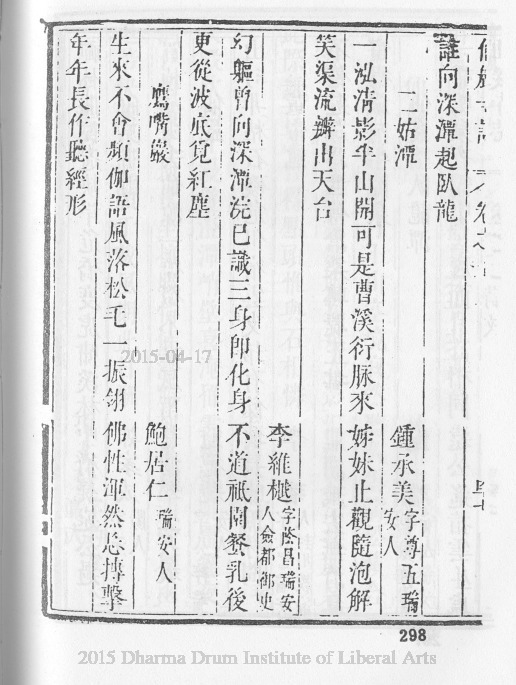 誰向深潭起臥龍
二姑潭
鍾承美字尊五瑞安人
一泓清影半山開可是曹溪衍脉來姊妹止觀隨泡解
笑渠流瓣出天台
李維樾字蔭昌瑞安人僉都御史
幻軀曾向深潭浣已識三身即化身不道祗園餐乳後
更從波底覓紅塵
鷹嘴巖
鮑居仁瑞安人
生來不會頻伽語風落松毛一振翎佛性渾然忘搏擊
年年長作聽經形
298
2015-04-17
2015 Dharma Drum Institute of Liberal Arts